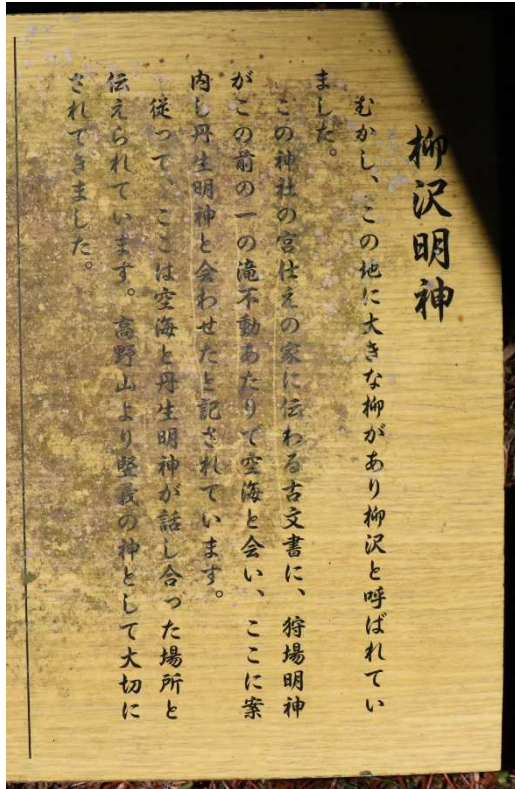 柳沢明神
むかし、この地に大きな柳があり柳沢と呼ばれてい
ました。
この神社の宮仕えの家に伝わる古文書に、狩場明神
がこの前の一の滝不動あたりで空海と会い、ここに案
内し丹生明神と会わせたと記されています。
従って、ここは空海と丹生明神が話し合った場所と
伝えられています。高野山より堅義の神として大切に
されてきました。